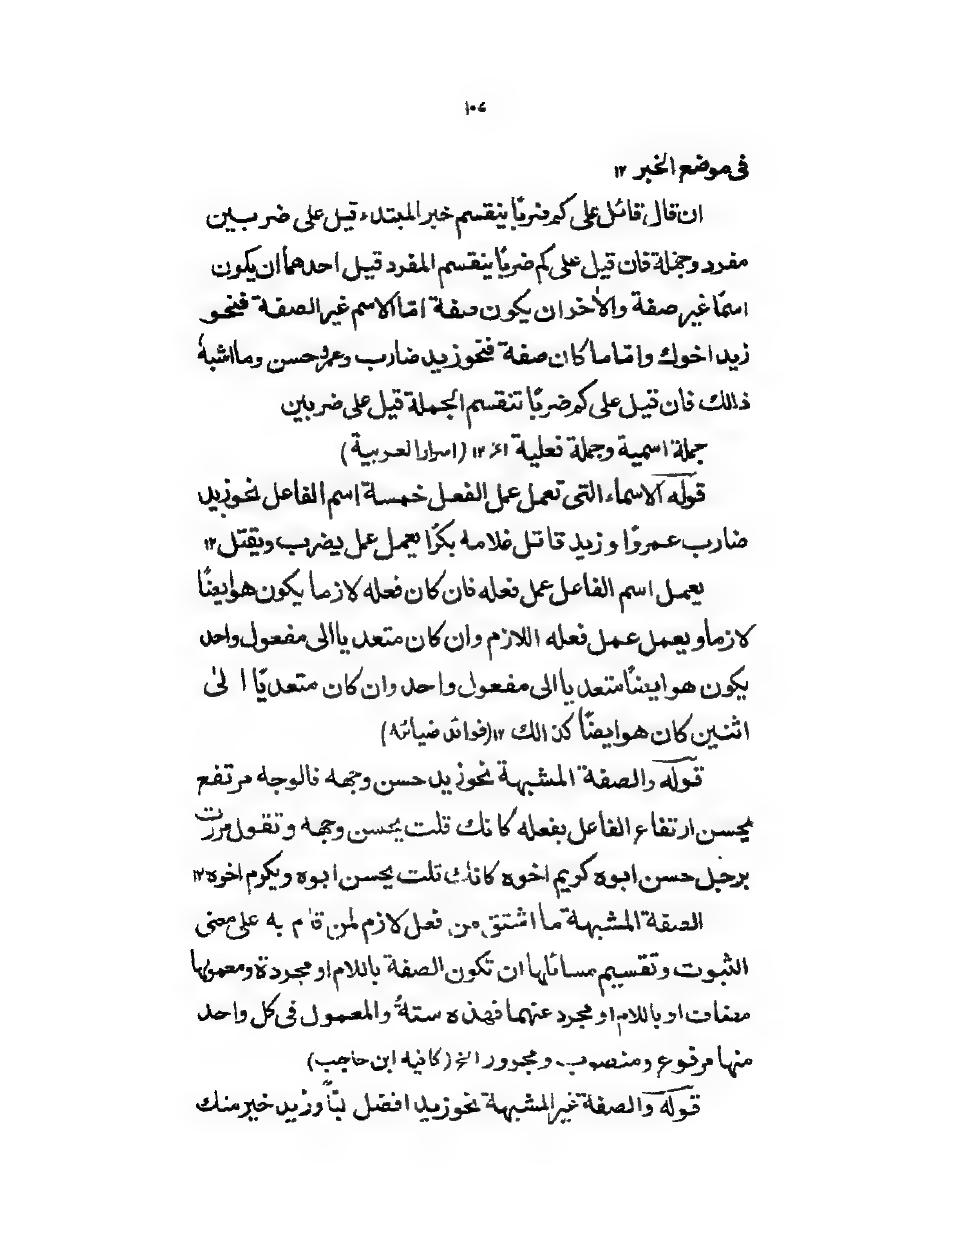 ١٠٧
فی موضع الخبر ١٢
ان قال قائل علی کم ضربًا ینقسم خبر المبتداء قیل علی ضربین
مفرد وجملة فان قیل علی کم ضربًا ینقسم المفرد قیل احدهما أن یکون
اسمًا غیر صفة والأخر ان یکون صفة امّا الاسم غیر الصفة فنحو
زید اخوك وامّا ما کان صفة فنحو زید ضارب وعمرو حسن وما اشبهُ
ذالك فان قیل علی کم ضربًا تنقسم الجملة قیل علی ضربین
جملة اسمیة وجملة فعلیة الخ ١٢ (اسرار العربیة)
قوله الاسماء التی تعمل عمل الفعل خمسة اسم الفاعل نحو زید
ضارب عمروًا و زید قاتل غلامه بکرًا یعمل عمل یضرب ویقتل ١٢
یعمل اسم الفاعل عمل فعله فان کان فعله لازما یکون هو ایضًا
لازما و یعمل عمل فعله اللازم وان کان متعدیا الی مفعول واحد
یکون هو ایضًا متعدیا الی مفعول واحد وان کان متعدیًا الی
اثنین کان هو ایضًا کذالك ١٢ (فوائد ضیائه)
قوله والصفة المشبهة نحو زید حسن وجهه فالوجه مرتفع
بحسن ارتفاع الفاعل بفعله کانك قلت یحسن وجهه وتقول مررت
برجل حسن ابوه کریم اخوه کانك قلت یحسن ابوه ویکرم اخوه ١٢
الصفة المشبهة ما اشتق من فعل لازم لمن قام به علی معنی
الثبوت وتقسیم مسائلها ان تکون الصفة باللام او مجردة ومعمولها
مضاف او باللام او مجرد عنهما فهذه ستةُ والمعمول فی کل واحد
منها مرفوع ومنصوب ومجرور الخ (کافیه ابن حاجب)
قوله والصفة غیر المشبهة نحو زید افضل ابًا وزید خیر منك